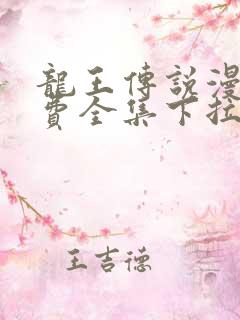 龍王傳說漫
費全集下拉
王吉德